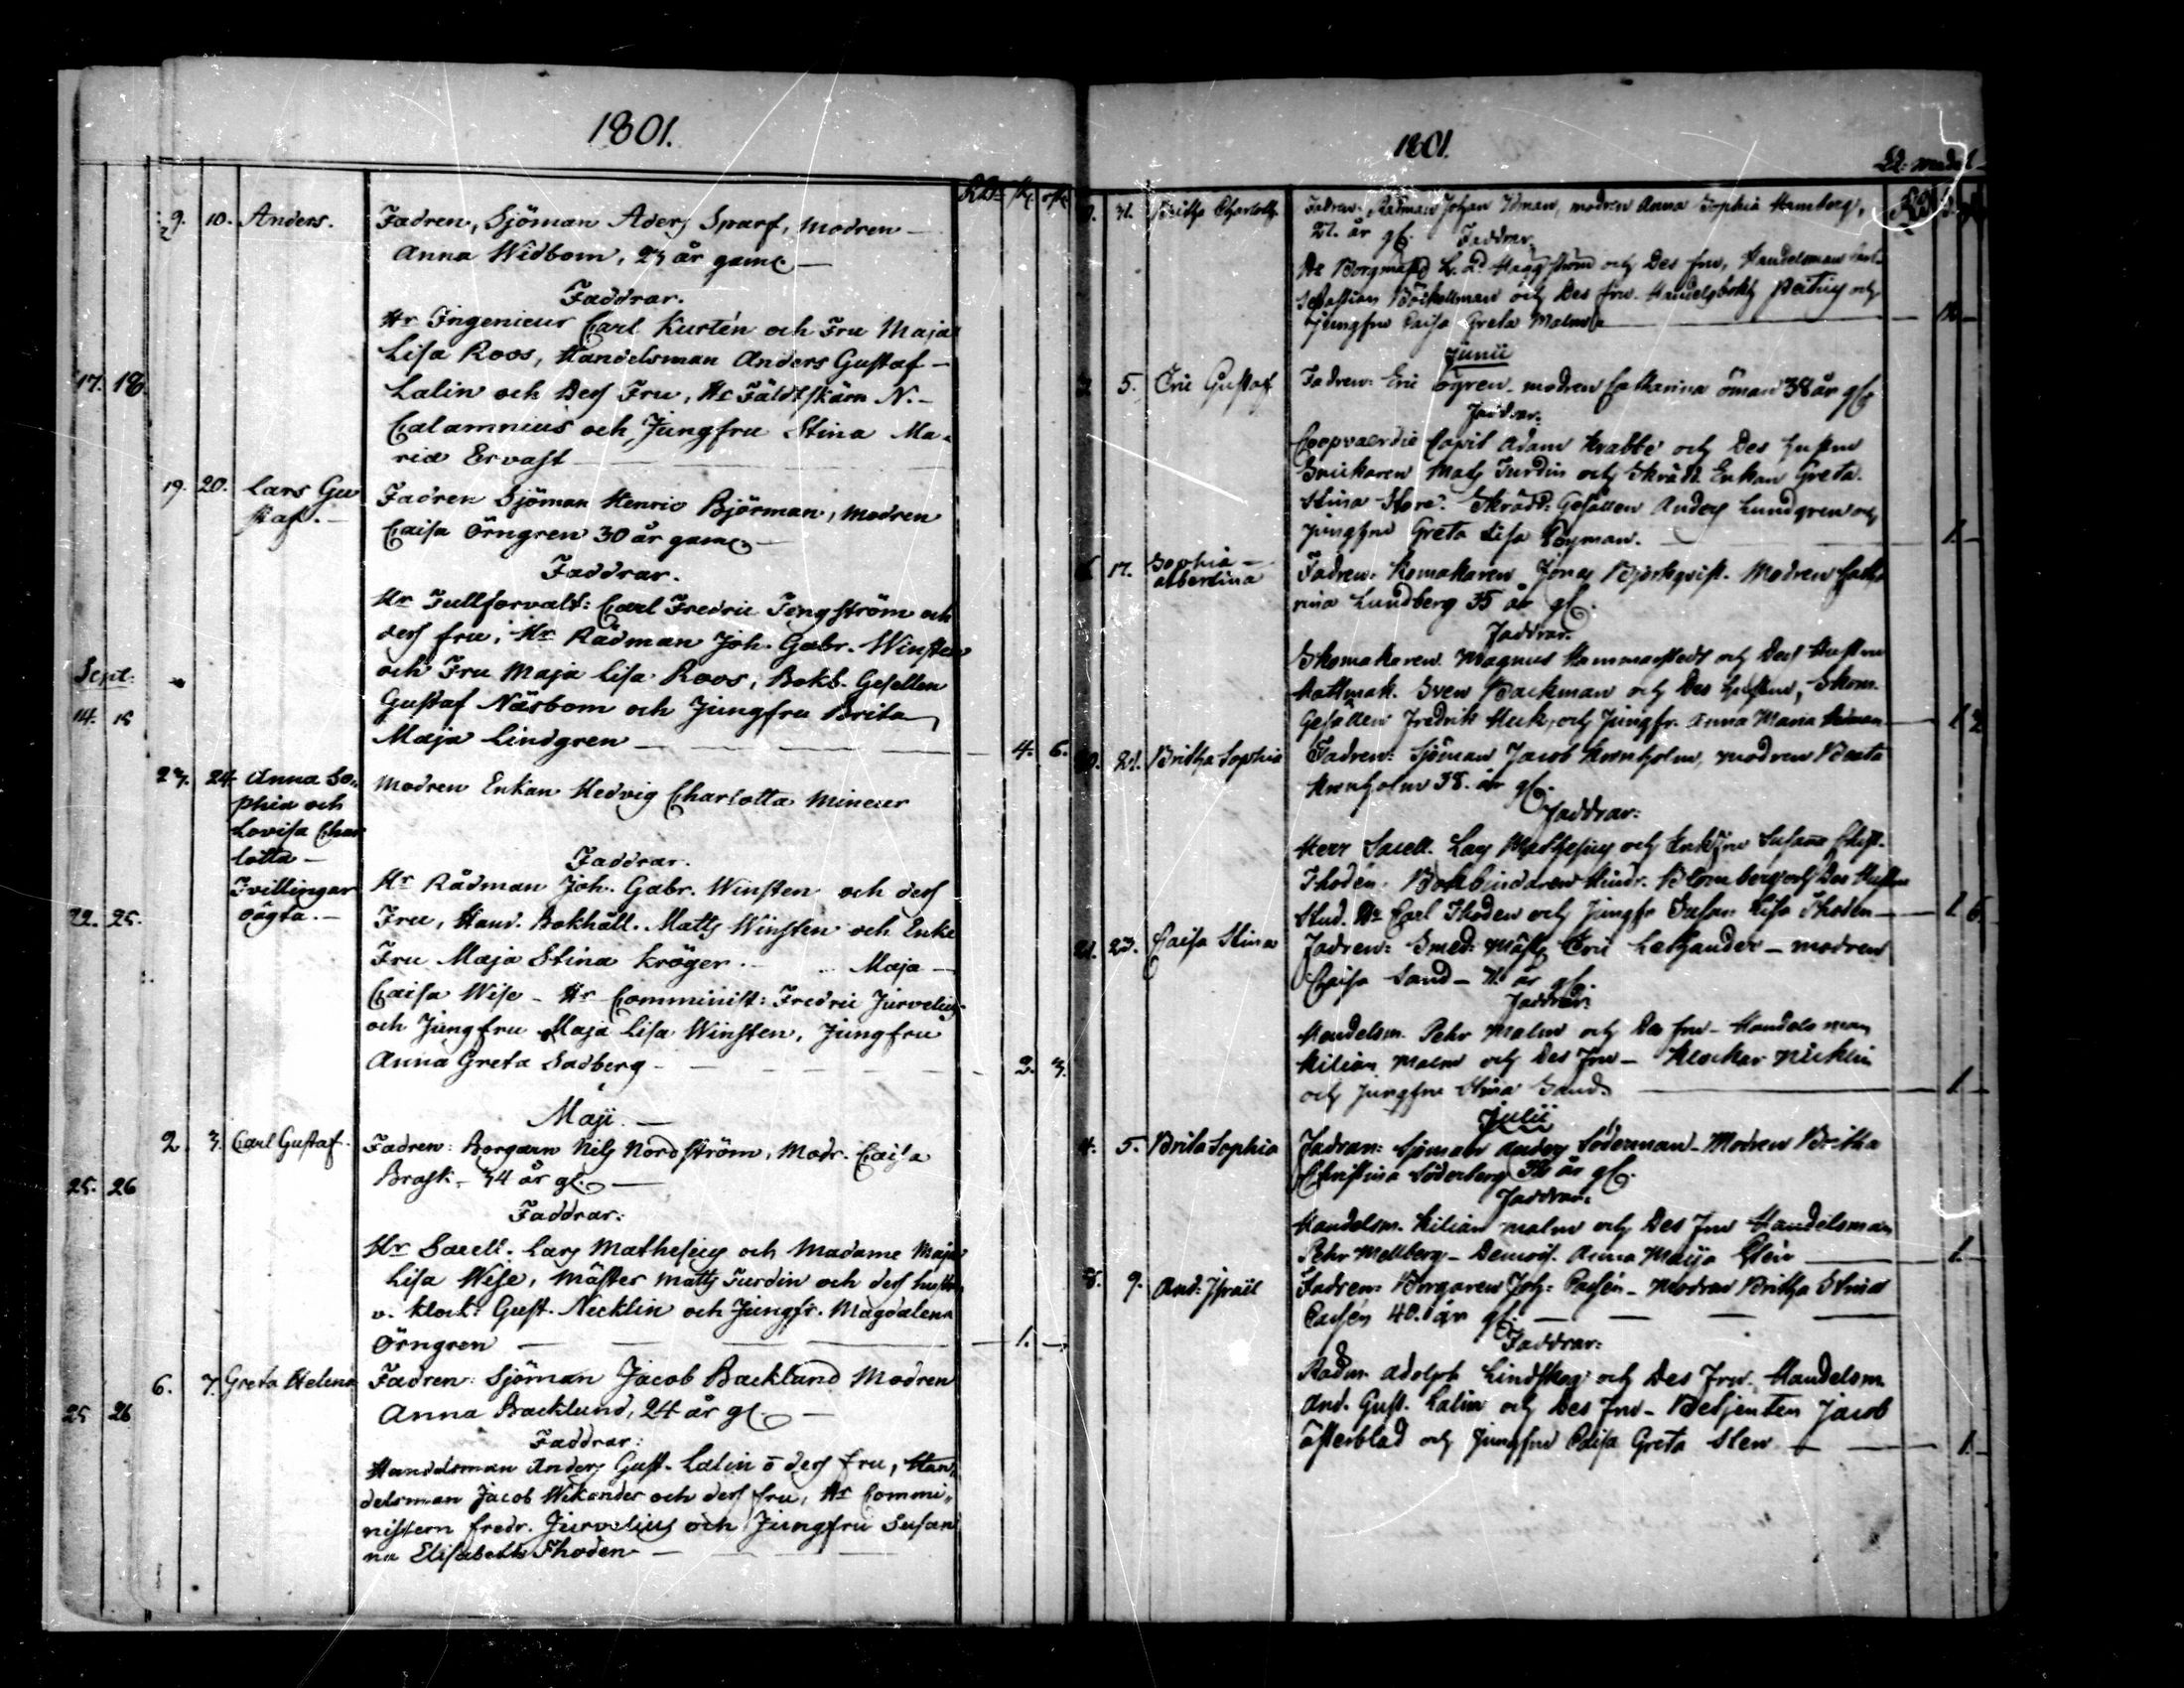 1801.
RD: sk. rst.
9. 10. Anders. Fadren, Sjöman Aders Sparf, modren
Anna Widbom, 23 år gaml.
Faddrar.
Hr Ingenieur Carl Kurtén och Fru Maja
Lisa Roos, Handelsman Anders Gustaf
17. 18. Lalin och Des Fru, Hr Fältskärn N.
Calamnius och Jungfru Stina Ma-
ria Ervast
19. 20. Lars Gu
staf. Fadren Sjöman Henric Björman, modren
Caisa Örngren 30 år gaml.
Faddrar.
Hr Tullförvalt: Carl Fredric Tengström och
des fru, Hr Rådman Joh. Gabr. Winsten
Sept. och Fru Maja Lisa Roos, Bokb. Gesellen
14. 15 Gustaf Näsbom och Jungfru Brita
Maja Lindgren 4. 6.
23. 24 Anna So-
phia och
Lovisa Char
lotta
Tvillingar
oägta. Modren Enkan Hedvig Charlotta Mineur
Faddrar.
Hr Rådman Joh. Gabr. Winsten och des
22. 25. Fru, Hand. Bokhåll. Matts Winsten och Enke
Fru Maja Stina Kröger. Maja
Caisa Wise Hr Comminist: Fredric Jurvelius
och Jungfru Maja Lisa Winsten, Jungfru
Anna Greta Sadberg 2. 3.
Maji.
2. 3. Carl Gustaf. Fadren: Borgarn Nils Nordström, Modr. Caisa
25. 26 Brask 34 år gl.
Faddrar:
Hr Sacell. Lars Mathesius och Madame Maja
Lisa Wise, Mäster Matts Turdin och des hustru,
v. Klock: Gust. Necklin och Jungfr. Magdalena
Örngren 1.
6. 7. Greta Helena Fadren: Sjöman Jacob Backlund Modren
25 26 Anna Backlund, 24 år gl.
Faddrar:
Handelsman Anders Gust. Lalin o des fru, Han-
delsman Jacob Wikander och des fru, Hr Commi-
nistern Fredr. Jurvelius och Jungfru Susan
na Elisabeth Thoden
1801.
31. Britha Charlotta Fadren: Rådman Johan Öman, modren Anna Sophia Hamberg,
21. år gl. Faddrar.
Hr Borgmäst L. Häggström och Des fru, Handelsman
och Des fru. Handelsbokh och
Jungfru Caisa Greta Malm
Junii
5. Eric Gustaf Fadren: Eric Ögren modren Catharina Öman 38 år gl.
Faddrar:
Coopvaerdie Capit Adam Krabbe och Des hustru
Mats Turdin och Skrädd. Enkan Greta
Stina Skrädd: Gesällen Anders Lundgren och
Jungfru Greta Lisa Toyman. 1
17. Sophia
Albertina Fadren: Jonas Björkqvist. Modren Catha
rina Lundberg 35 år gl.
Faddrar.
Skomakaren Magnus Hammarstedt och Des Hustru
Hattmak. Sven Backman och Des hustru, Skom.
Gesällen Fredrik och Jungfr. Anna Maria 1 2
21. Britha Sophia Fadren: Sjöman Jacob Kronholm, modren Beata
Kronholm 38. år gl.
Faddrar:
Herr Sacell. Lars Mathesius och EnkeFru Susana
Thodén. Bokbindaren Blomberg och Des Hustru
Stud. Hr Carl Thoden och Jungfr Susan: Lisa Thoden 1 6
21. 23. Caisa Stina Fadren: Smed: Mäst. Eric Lethander modren
Caisa Sand år gl.
Faddrar:
Handelsm. Pehr Malm och Des fru Handelsman
Kilian Malm och Des Fru Klockar Nicklin
och Jungfru Stina Sand. 1
Julii
4. 5. Brita Sophia Fadren: Sjöman Anders Söderman Modren Britha
Christina Söderberg år gl.
Faddrar:
Handelsm. Kilian Malm och Des Fru Handelsman
Pehr Mellberg Demois. Anna Maija 1.
8. 9. And: Israël Fadren: Borgaren Joh: Casén Modren Britha Stina
Casén 40. år gl.
Faddrar:
Rådm. Adolph Lindskog och Des Fru. Handelsm.
And. Gust. Lalin och Des Fru Betjenten Jacob
Österblad och Jungfru Caisa Greta Sten 1